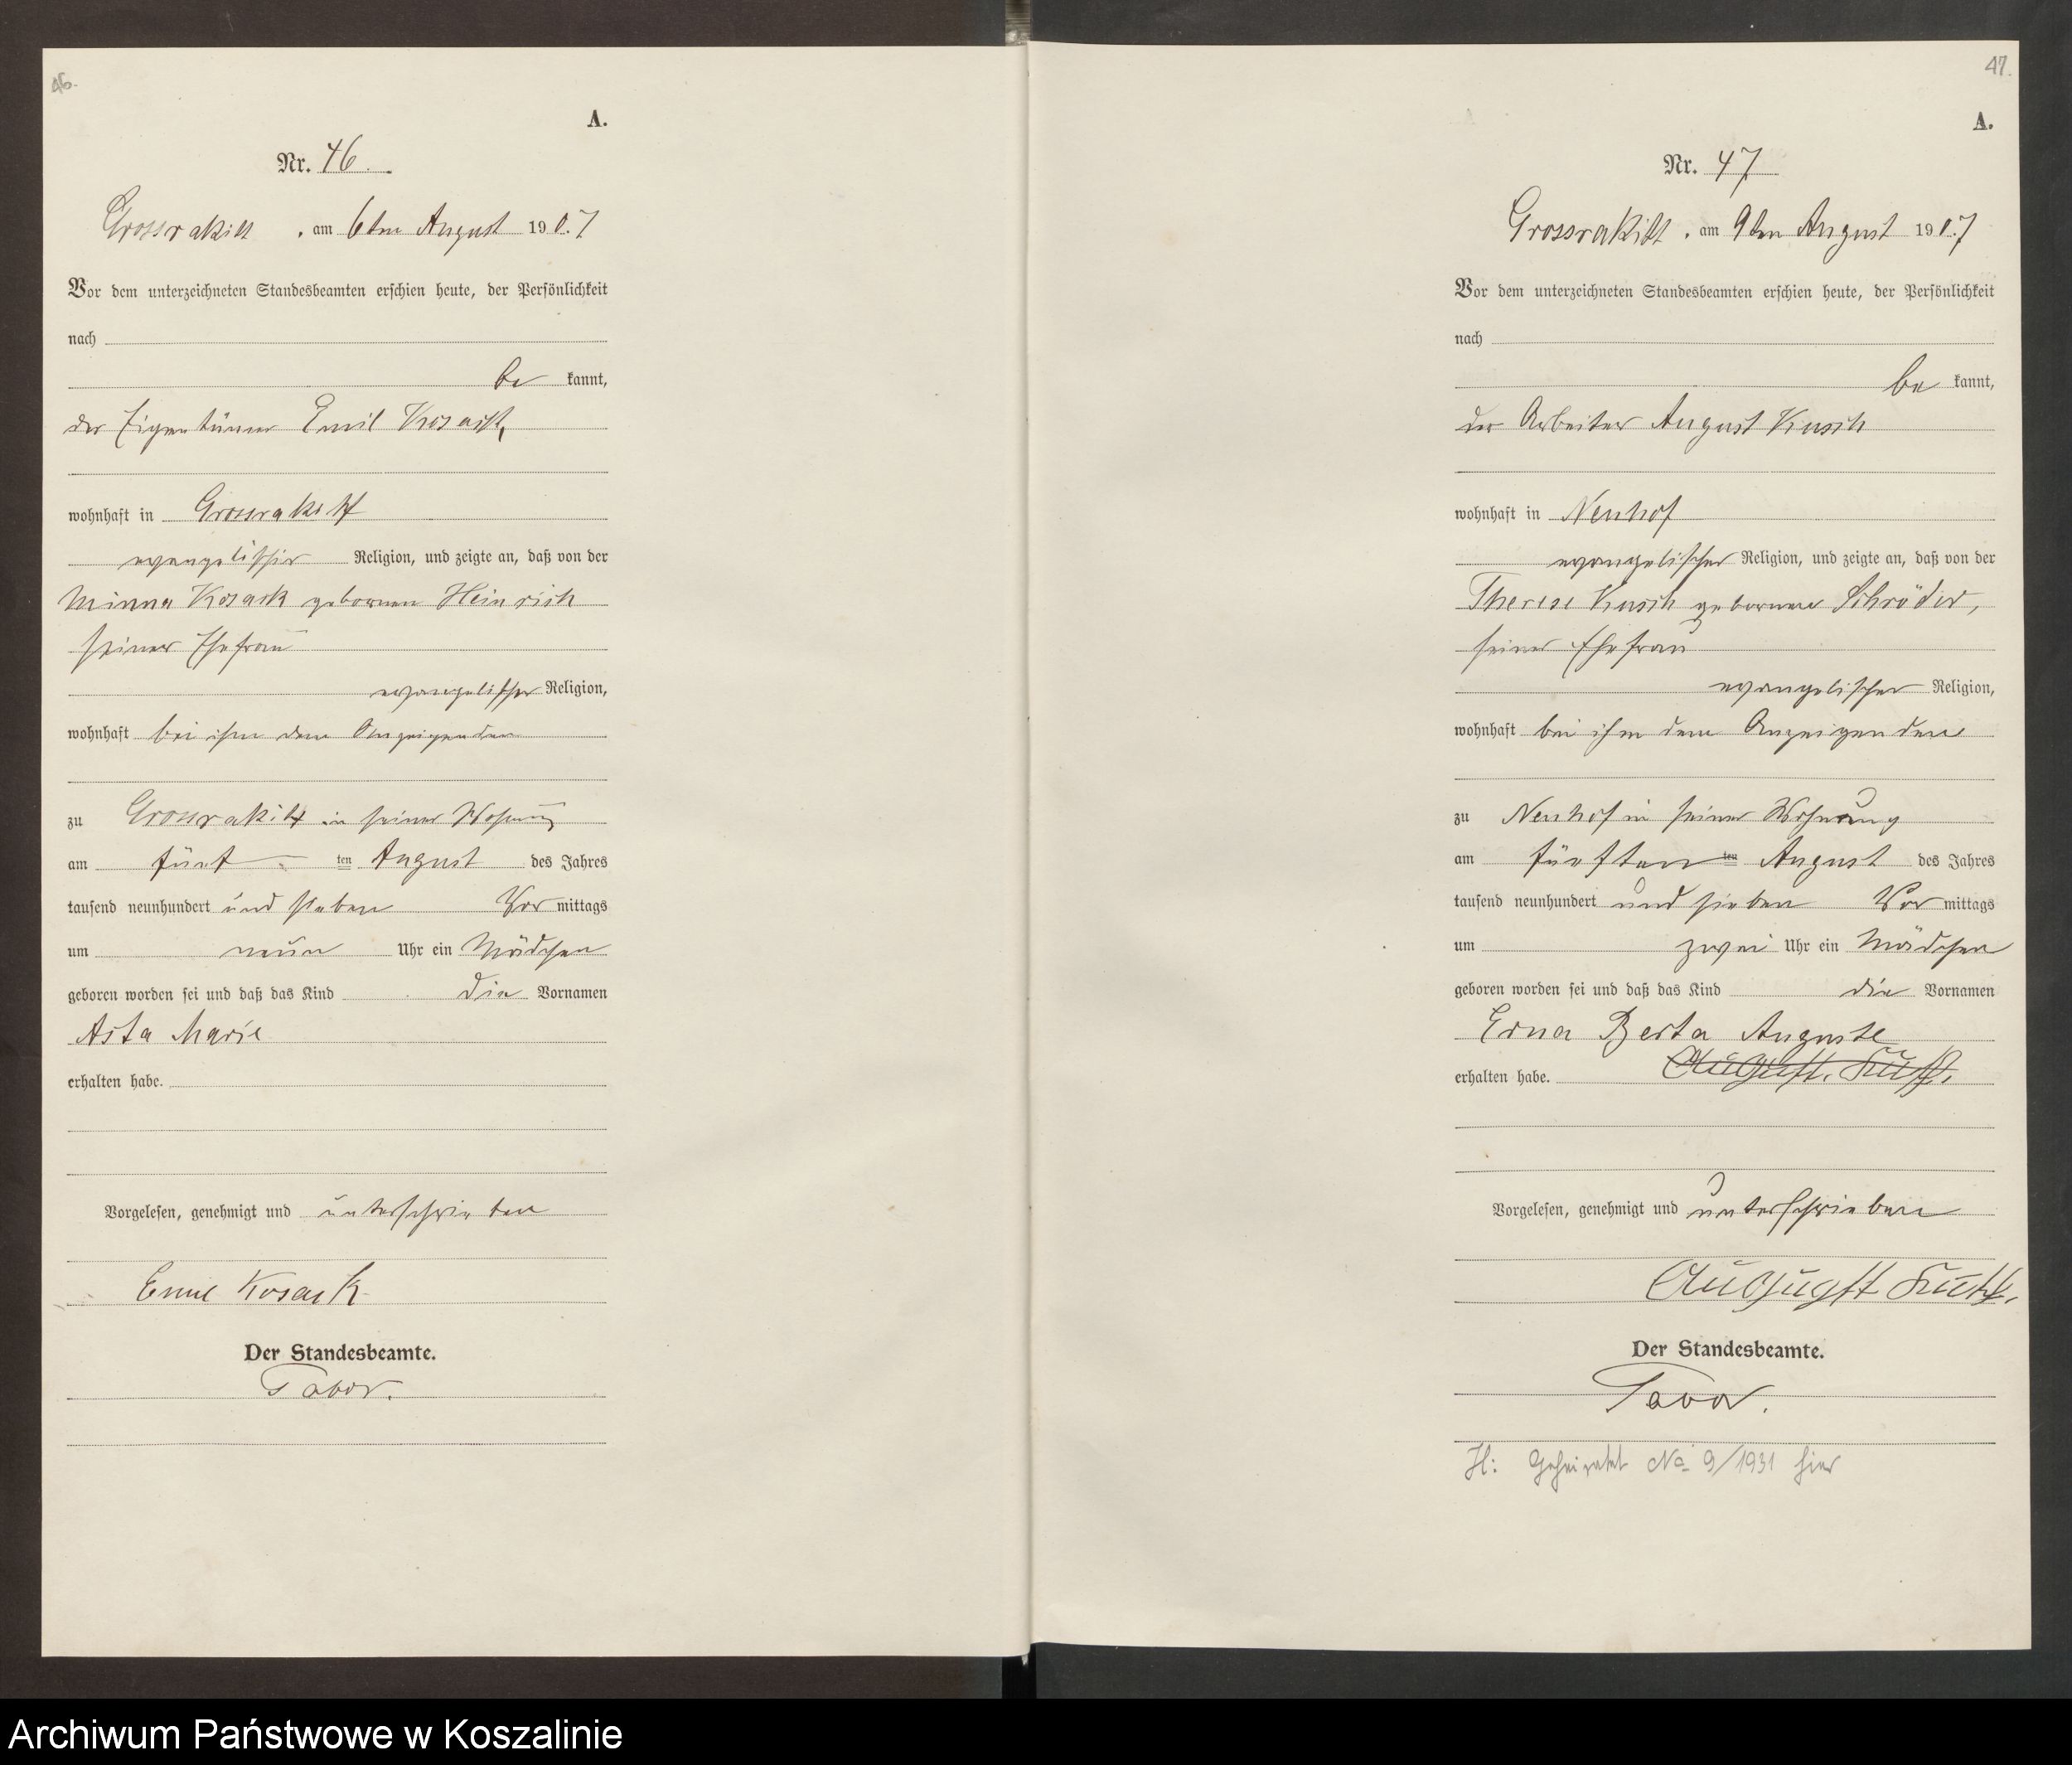 46.
A.
Nr. 46.
Grossrakitt, am 6ten August 1907
Vor dem unterzeichneten Standesbeamten erschien heute, der Persönlichkeit
nach
be kannt,
der Eigentümer Emil Kosack,
wohnhaft in Grossrakitt
evangelischer Religion, und zeigte an, daß von der
Minna Kosack geborenen Heinrich
seiner Ehefrau
evangelischer Religion,
wohnhaft bei ihm dem Anzeigenden
zu Grossrakitt in seiner Wohnung
am fünf ten August des Jahres
tausend neunhundert und sieben Vor mittags
um neun Uhr ein Mädchen
geboren worden sei und daß das Kind die Vornamen
Asta Marie
erhalten habe.
Vorgelesen, genehmigt und unterschrieben
Emil Kosack
Der Standesbeamte.
Tabor.
47.
A.
Nr. 47
Grossrakitt, am 9ten August 1907
Vor dem unterzeichneten Standesbeamten erschien heute, der Persönlichkeit
nach
be kannt,
der Arbeiter August Kusch
wohnhaft in Neuhof
evangelischer Religion, und zeigte an, daß von der
Therese Kusch geborenen Schröder,
seiner Ehefrau
evangelischer Religion,
wohnhaft bei ihm dem Anzeigenden
zu Neuhof in seiner Wohnung
am fünften ten August des Jahres
tausend neunhundert und sieben Vor mittags
um zwei Uhr ein Mädchen
geboren worden sei und daß das Kind die Vornamen
Erna Berta Auguste
erhalten habe. August. Kusch.
Vorgelesen, genehmigt und unterschrieben
Augugst Kusch.
Der Standesbeamte.
Tabor.
H: Geheiratet No 9/1931 hier
Archiwum Państwowe w Koszalinie